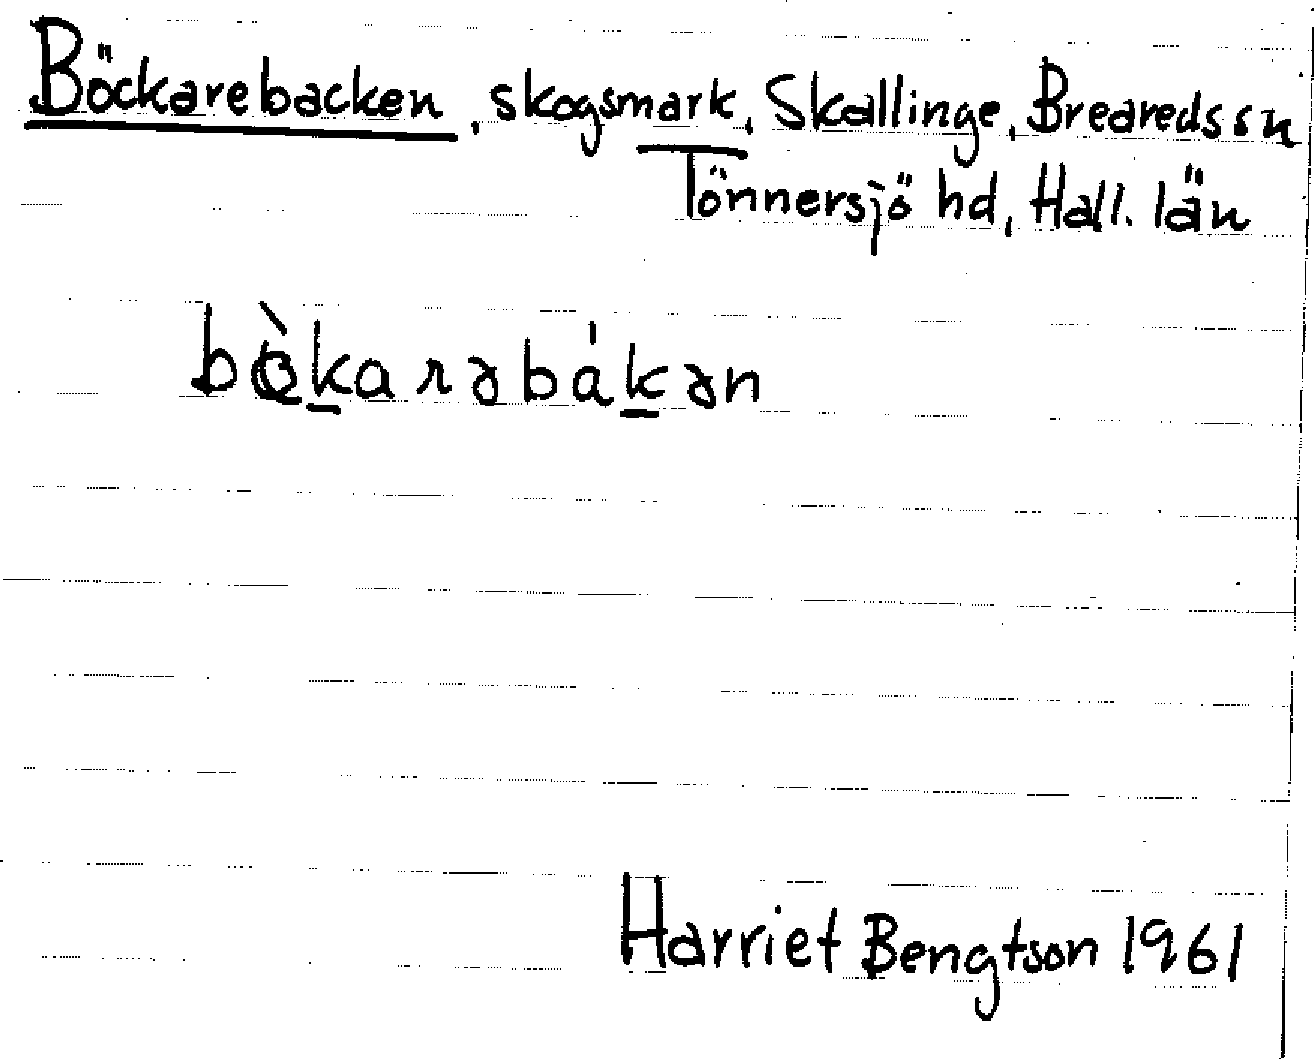 Böckarebacken, skogsmark, Skallinge, Breareds sn
Tönnersjö hd, Hall. län
bò̤ḵarəbáḵən
Harriet Bengtson 1961